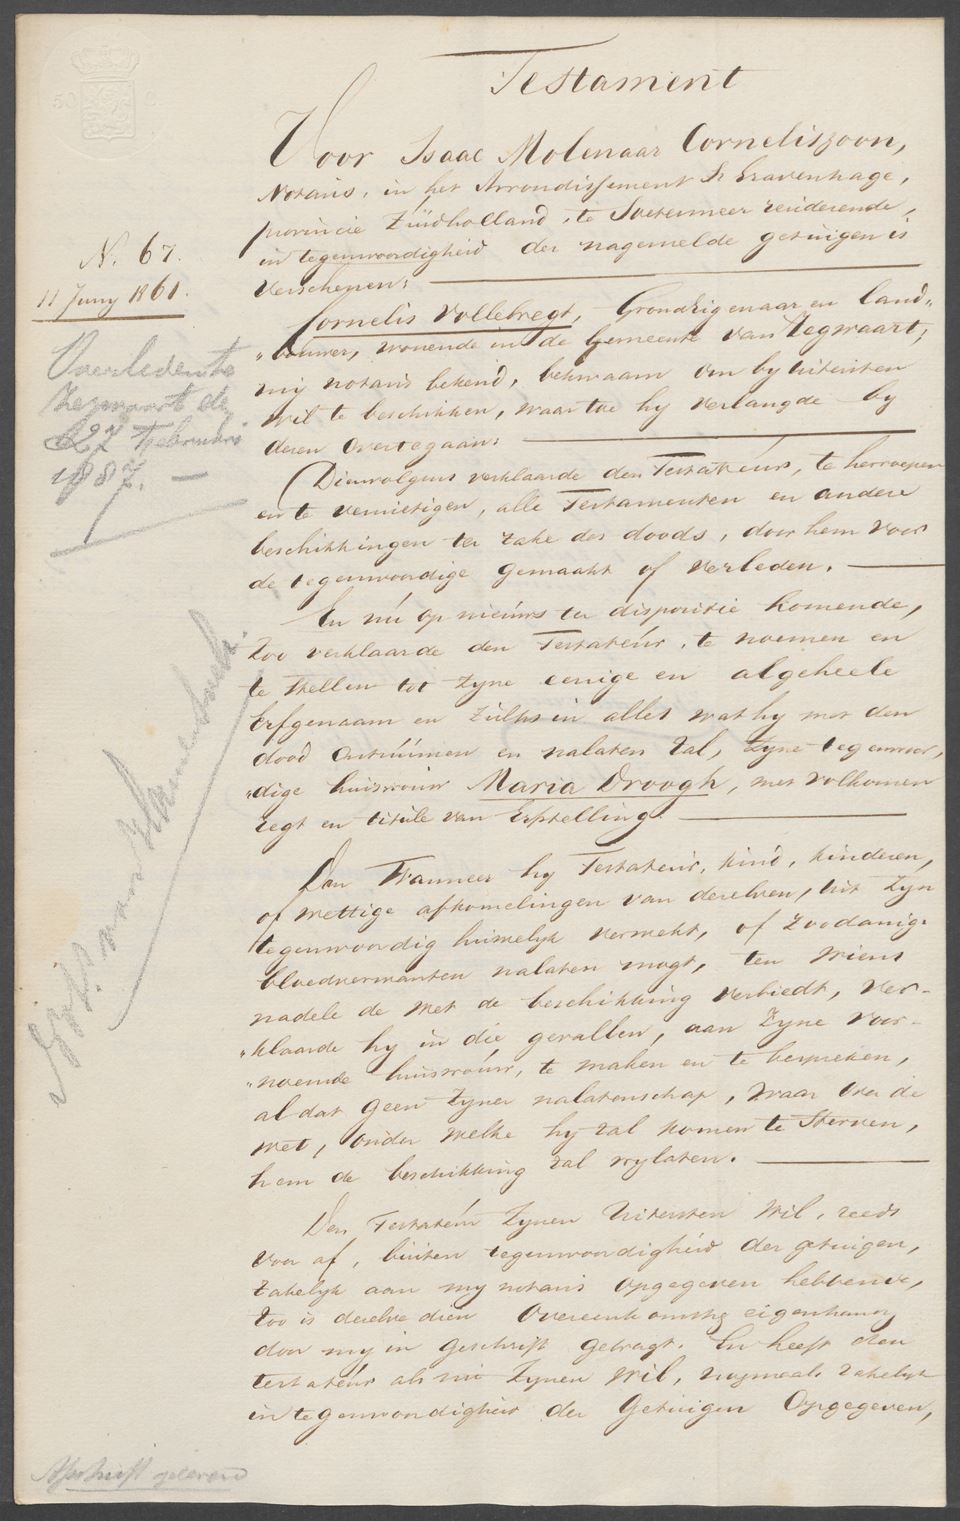 Testament
Voor Isaac Molenaar Corneliszoon,
Notaris, in het Arrondissement 's Gravenhage,
provincie Zuidholland, te Soetermeer resideerende,
in tegenwoordigheid der nagemelde getuigen is
verschenen:
N. 67.
11 Juny 1861.
Cornelis Vollebregt, Grondeigenaar en land-
"bouwer, wonende in de gemeente van Zegwaart,
mij notaris bekend, bekwaam om by uitersten
wil te beschikken, waartoe hy verlangde by
deren overtegaan:
Overleden te
Zegwaart de
27 Februari
1887. —
Dienvolgens verklaarde den Testateur, te herroepen
en te vernietigen, alle Testamenten en andere
beschikkingen ter zake des doods, door hem voor
de tegenwoordige gemaakt of verleden.
En nu op nieuws ter dispositie komende,
Zoo verklaarde den Testateur, te noemen en
te stellen tot zyne eenige en algeheele
Erfgenaam en Zulks in alles wat hy met den
dood ontruimen en nalaten zal, zyne tegenwoor,
"dige huisvrouw Maria Droogh, met volkomen
regt en titule van Erfstelling.
Dan Wanneer hy Testateur, kind, kinderen,
of wettige afkomelingen van dezelven, uit zyn
tegenwoordig huwelyk verwekt, of zoodanige
bloedverwanten nalaten mogt, ten wiens
nadele de wet de beschikking verbiedt, ver-
"klaarde hy in die gevallen, aan zyne voor-
"noemde huisvrouw, te maken en te bespreken,
al dat geen zyner nalatenschap, waar over de
wet, onder welke hy zal komen te Sterven,
hem de beschikking zal vrylaten.
Den Testateur zynen uitersten wil, reeds
voor af, buiten tegenwoordigheid der getuigen,
zakelyk aan my notaris opgegeven hebbende,
zoo is dezelve dien overeenkomstig eigenhandig
door my in geschrift gebragt. En heeft den
testateur als nu zynen wil, nogmaals zakelyk
in tegenwoordigheid der Getuigen opgegeven,
Afschrift gegeven